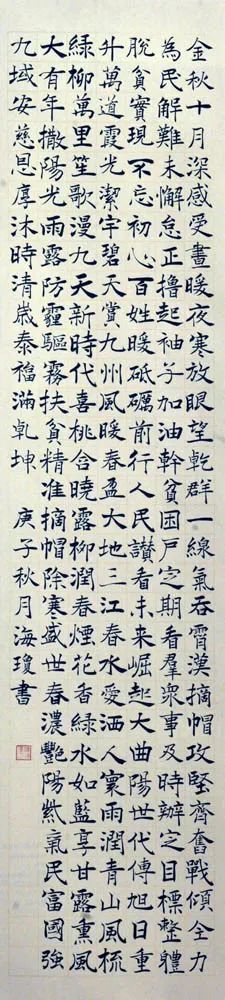 金秋十月深感受晝暖夜寒放眼望乾群一線氣吞霄漢摘帽攻堅齊奮戰傾全力
為民解難未懈怠正擼起袖子加油幹貧困戶定期看羣衆事及時辦定目標整體
脫貧實現不忘初心百姓暖砥礪前行人民讚看未來崛起大曲陽世代傳旭日重
升萬道霞光潔宇碧天賞九州風暖春盈大地三江春水愛洒人寰雨潤青山風梳
綠柳萬里笙歌漫九天新時代喜桃合曉露柳潤春煙花香綠水如藍享甘露熏風
大有年撒陽光雨露防霾驅霧扶貧精准摘帽除寒盛世春濃艷陽紫氣民富國強
九域安慈恩厚沐時清歲泰福滿乾坤 庚子秋月海瓊書